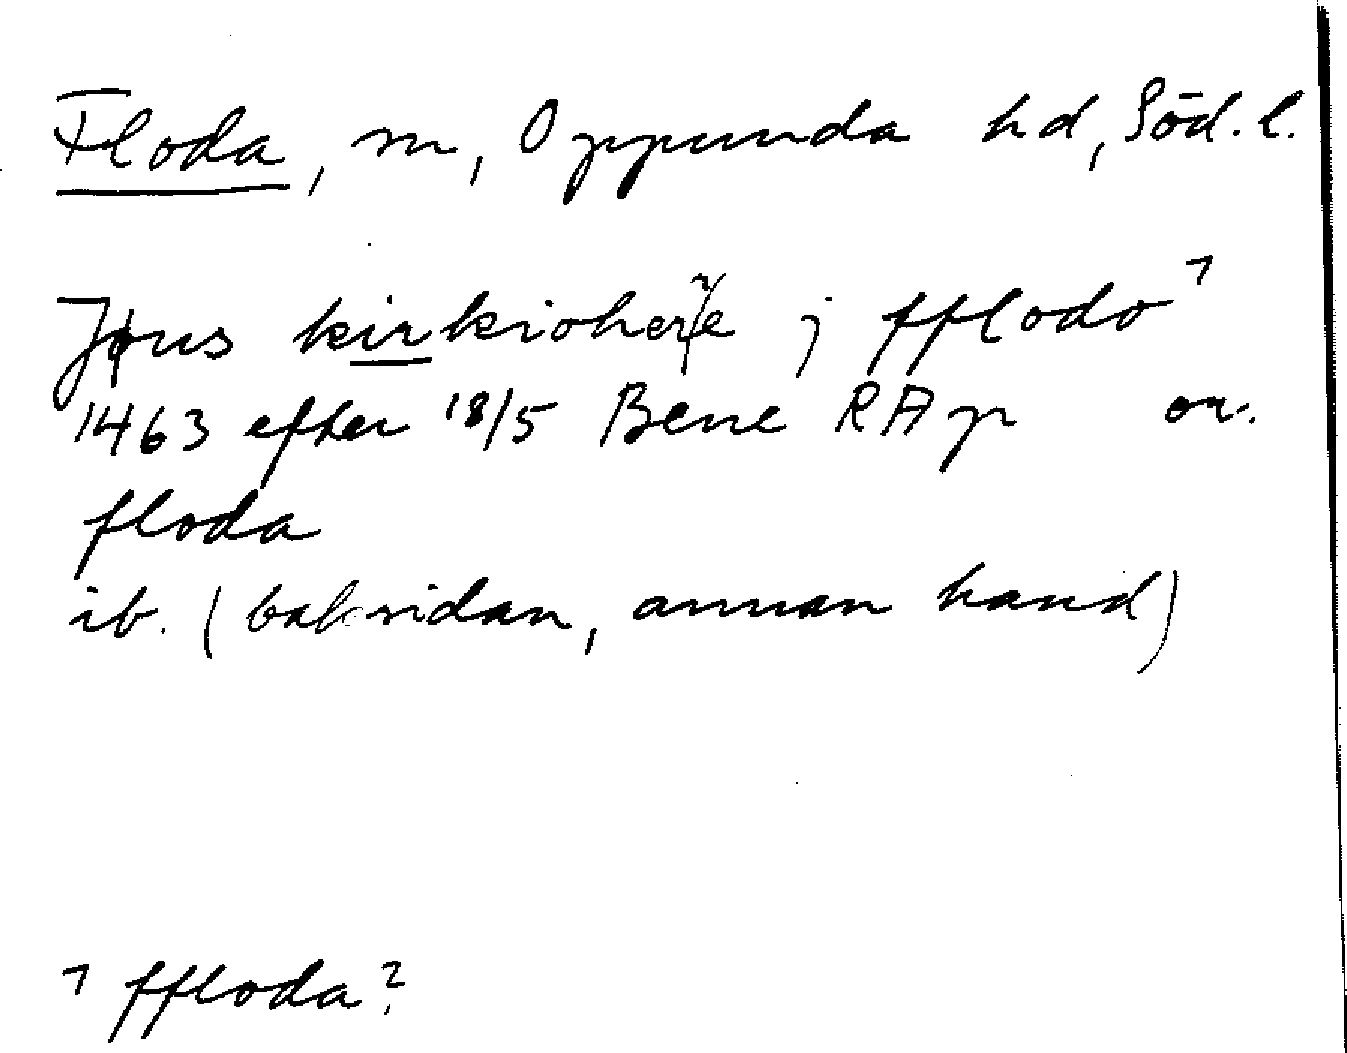 Floda, sn, Oppunda hd, Söd. l.
Jōns kirkioherre j fflodo ¹
1463 efter 18/5 Bene RAp or.
floda
ib. (baksidan, annan hand)
¹ ffloda?